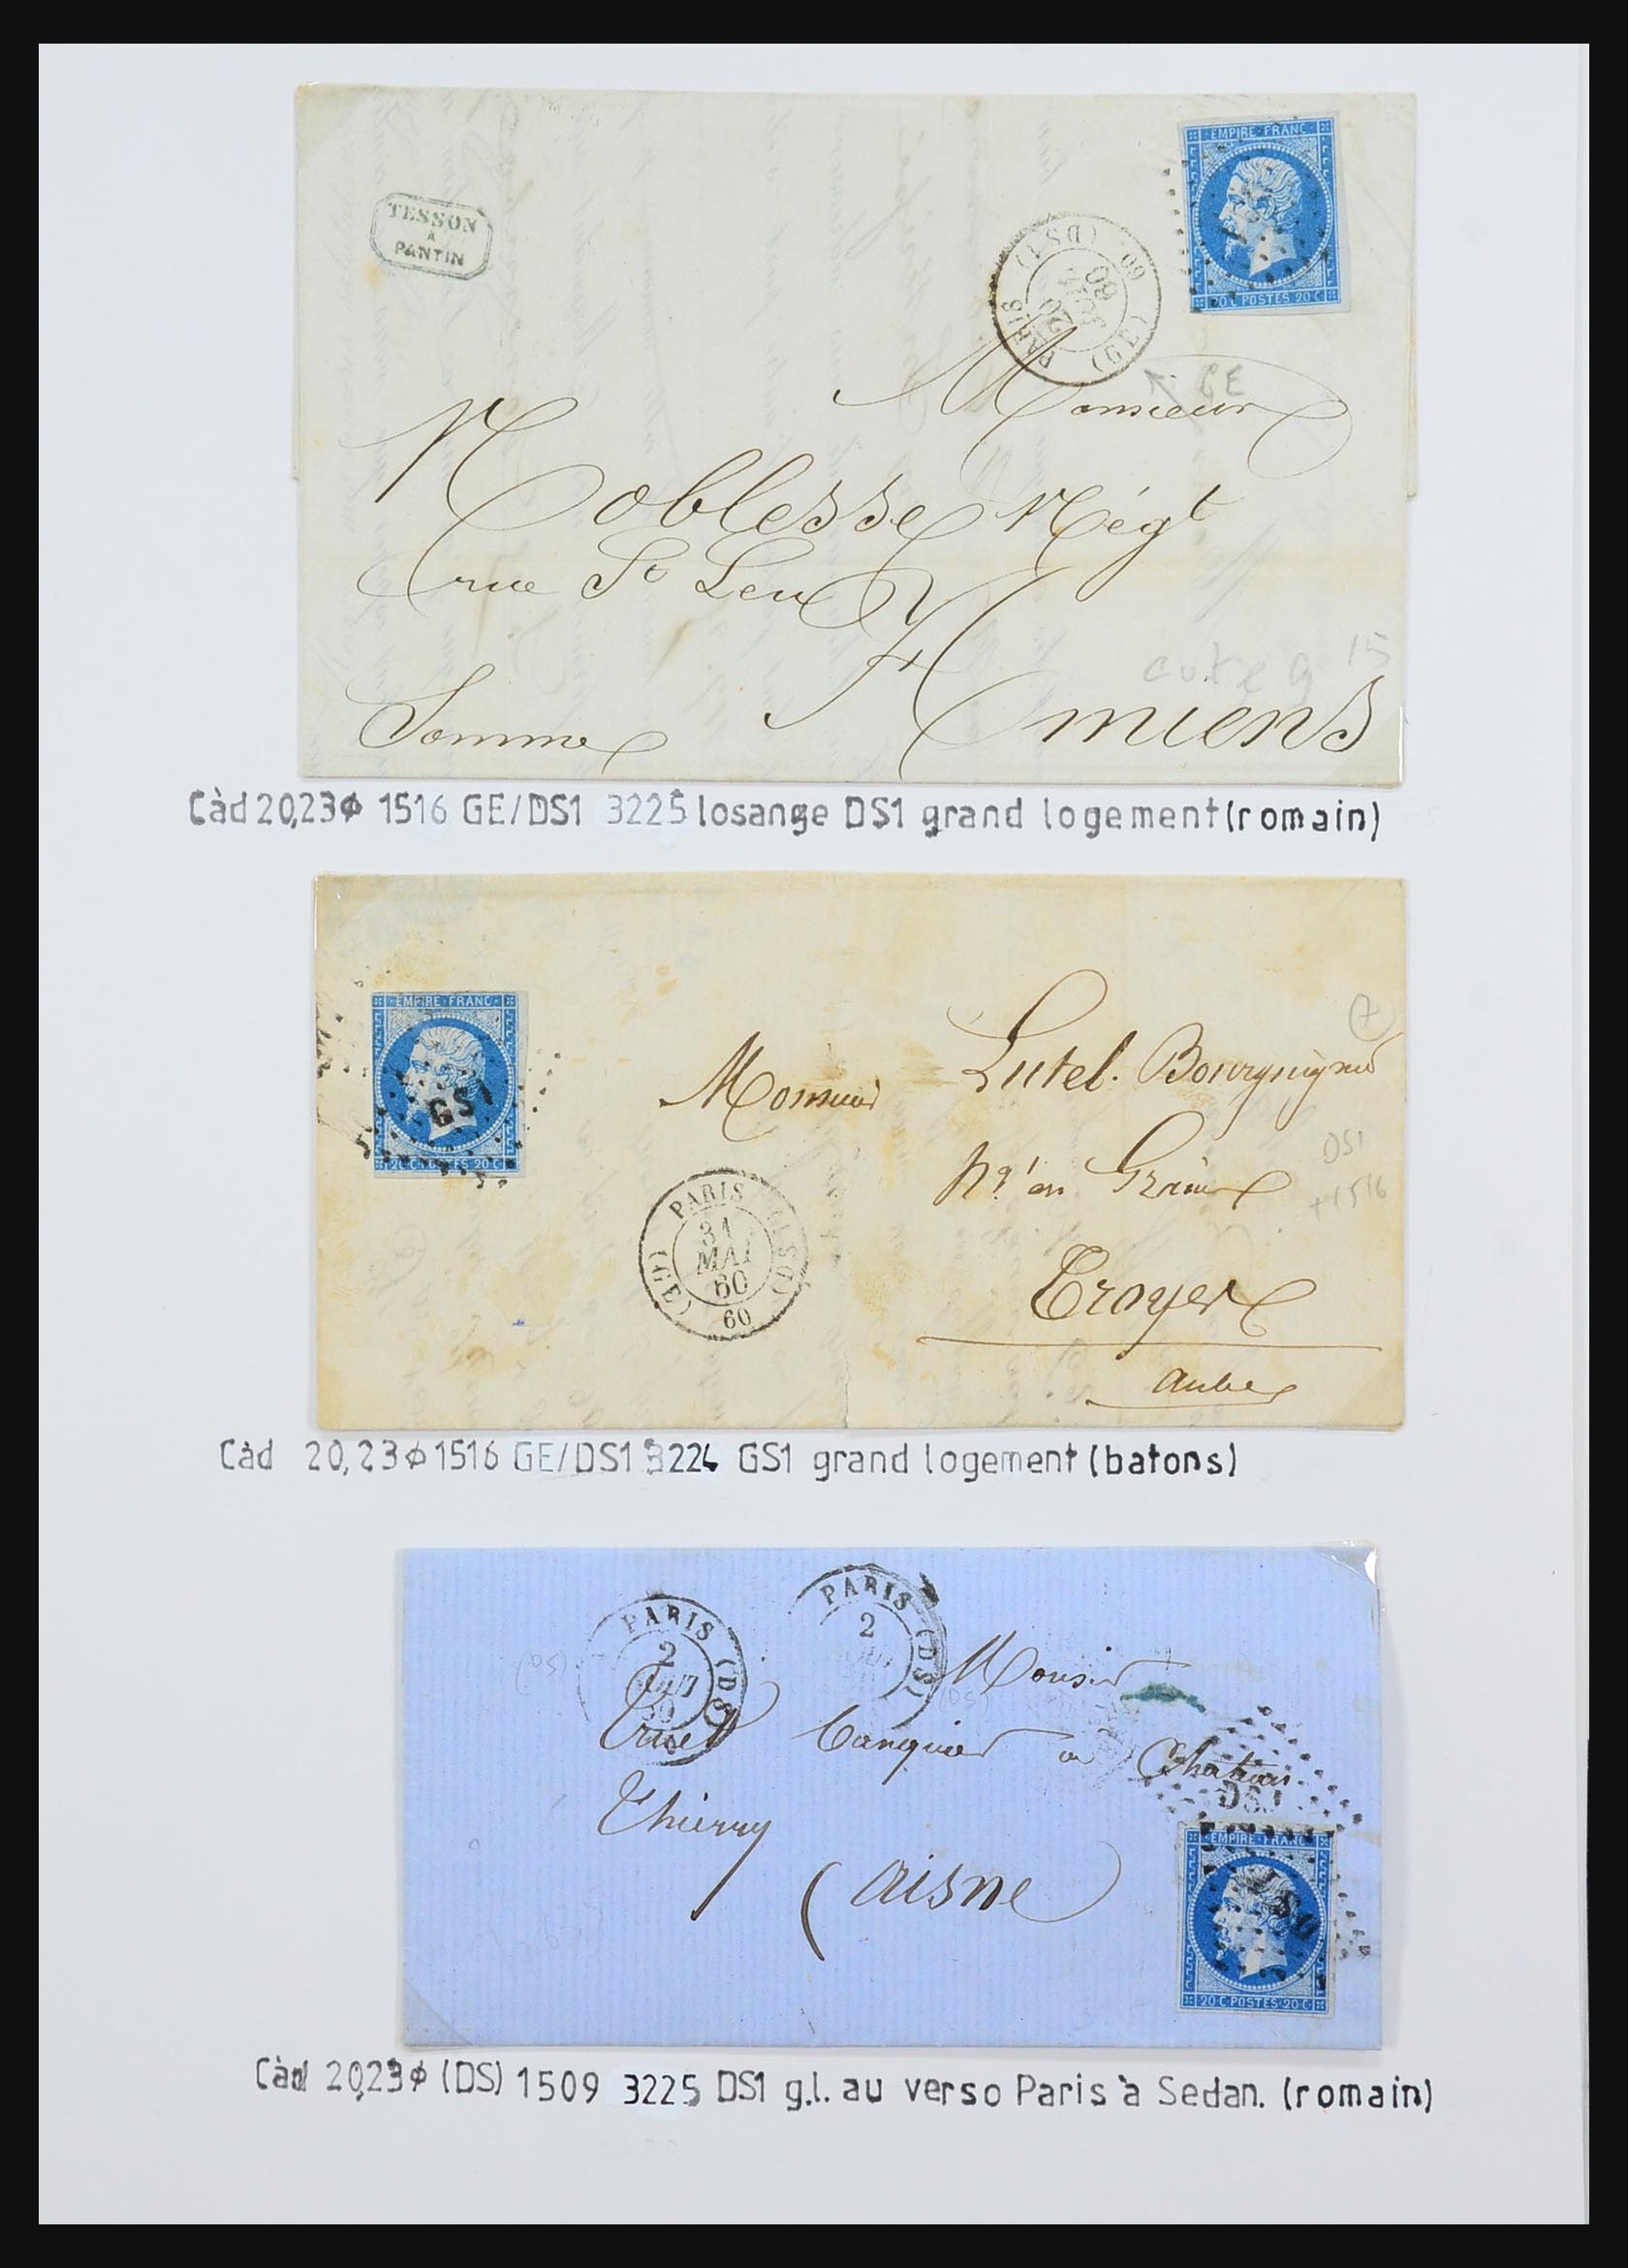 EMPIRE·FRANC
20 C·POSTES 20 C
TESSON
A
PANTIN
PARIS (DS1)
20
60
60
(GE)
GE
Monsieur
Noblesse Négt
rue St Leu
Amiens
Somme
cote g 15
Càd 20,23 ϕ 1516 GE/DS1 3225 losange DS1 grand logement (romain)
EMPIRE·FRANC
20 C·POSTES 20 C
GS1
Monsieur
Lutel. Bourguignon
Nt en Grains
Troyes
Aube
DS1
+1516
PARIS (DS1)
31
MAI
60
60
(GE)
Càd 20,23 ϕ 1516 GE/DS1 3224 GS1 grand logement (batons)
PARIS (DS)
2
PARIS (DS)
2
Monsieur
banquier a Chateau
Thierry
(aisne
DS1
EMPIRE·FRANC
DS1
20 C·POSTES·20 C
Càd 20,23 ϕ (DS) 1509 3225 DS1 g.l. au verso Paris à Sedan. (romain)